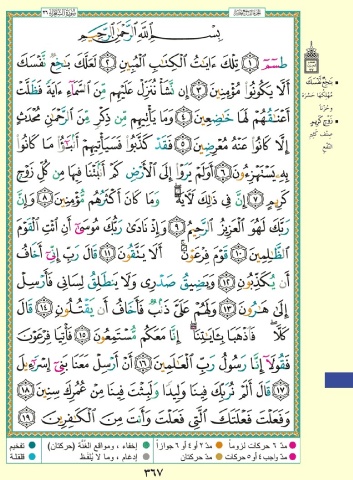 بِسْمِ اللَّهِ الرَّحْمَٰنِ الرَّحِيمِ
طسٓمٓ ١ تِلْكَ ءَايَٰتُ ٱلْكِتَٰبِ ٱلْمُبِينِ ٢ لَعَلَّكَ بَٰخِعٌ نَّفْسَكَ
أَلَّا يَكُونُوا۟ مُؤْمِنِينَ ٣ إِن نَّشَأْ نُنَزِّلْ عَلَيْهِم مِّنَ ٱلسَّمَآءِ ءَايَةً فَظَلَّتْ
أَعْنَٰقُهُمْ لَهَا خَٰضِعِينَ ٤ وَمَا يَأْتِيهِم مِّن ذِكْرٍ مِّنَ ٱلرَّحْمَٰنِ مُحْدَثٍ
إِلَّا كَانُوا۟ عَنْهُ مُعْرِضِينَ ٥ فَقَدْ كَذَّبُوا۟ فَسَيَأْتِيهِمْ أَنۢبَٰٓؤُا۟ مَا كَانُوا۟
بِهِۦ يَسْتَهْزِءُونَ ٦ أَوَلَمْ يَرَوْا۟ إِلَى ٱلْأَرْضِ كَمْ أَنۢبَتْنَا فِيهَا مِن كُلِّ زَوْجٍ
كَرِيمٍ ٧ إِنَّ فِى ذَٰلِكَ لَءَايَةً ۖ وَمَا كَانَ أَكْثَرُهُم مُّؤْمِنِينَ ٨ وَإِنَّ
رَبَّكَ لَهُوَ ٱلْعَزِيزُ ٱلرَّحِيمُ ٩ وَإِذْ نَادَىٰ رَبُّكَ مُوسَىٰٓ أَنِ ٱئْتِ ٱلْقَوْمَ
ٱلظَّٰلِمِينَ ١٠ قَوْمَ فِرْعَوْنَ ۚ أَلَا يَتَّقُونَ ١١ قَالَ رَبِّ إِنِّىٓ أَخَافُ
أَن يُكَذِّبُونِ ١٢ وَيَضِيقُ صَدْرِى وَلَا يَنطَلِقُ لِسَانِى فَأَرْسِلْ
إِلَىٰ هَٰرُونَ ١٣ وَلَهُمْ عَلَىَّ ذَنۢبٌ فَأَخَافُ أَن يَقْتُلُونِ ١٤ قَالَ
كَلَّا ۖ فَٱذْهَبَا بِـَٔايَٰتِنَآ ۖ إِنَّا مَعَكُم مُّسْتَمِعُونَ ١٥ فَأْتِيَا فِرْعَوْنَ
فَقُولَآ إِنَّا رَسُولُ رَبِّ ٱلْعَٰلَمِينَ ١٦ أَنْ أَرْسِلْ مَعَنَا بَنِىٓ إِسْرَٰٓءِيلَ
١٧ قَالَ أَلَمْ نُرَبِّكَ فِينَا وَلِيدًا وَلَبِثْتَ فِينَا مِنْ عُمُرِكَ سِنِينَ ١٨
وَفَعَلْتَ فَعْلَتَكَ ٱلَّتِى فَعَلْتَ وَأَنتَ مِنَ ٱلْكَٰفِرِينَ ١٩
بَٰخِعٌ نَّفْسَكَ
مهلكها حسرة
وحزنا
زوج كريم
صنف كثير
النفع
مدّ ٦ حركات لزوماً مدّ ٢ أو ٤ أو ٦ جوازاً إخفاء، ومواقع الغُنَّة (حركتان) تفخيم
مدّ واجب ٤ أو ٥ حركات مدّ حركتان إدغام، وما لا يُلفَظ قلقلة
٣٦٧